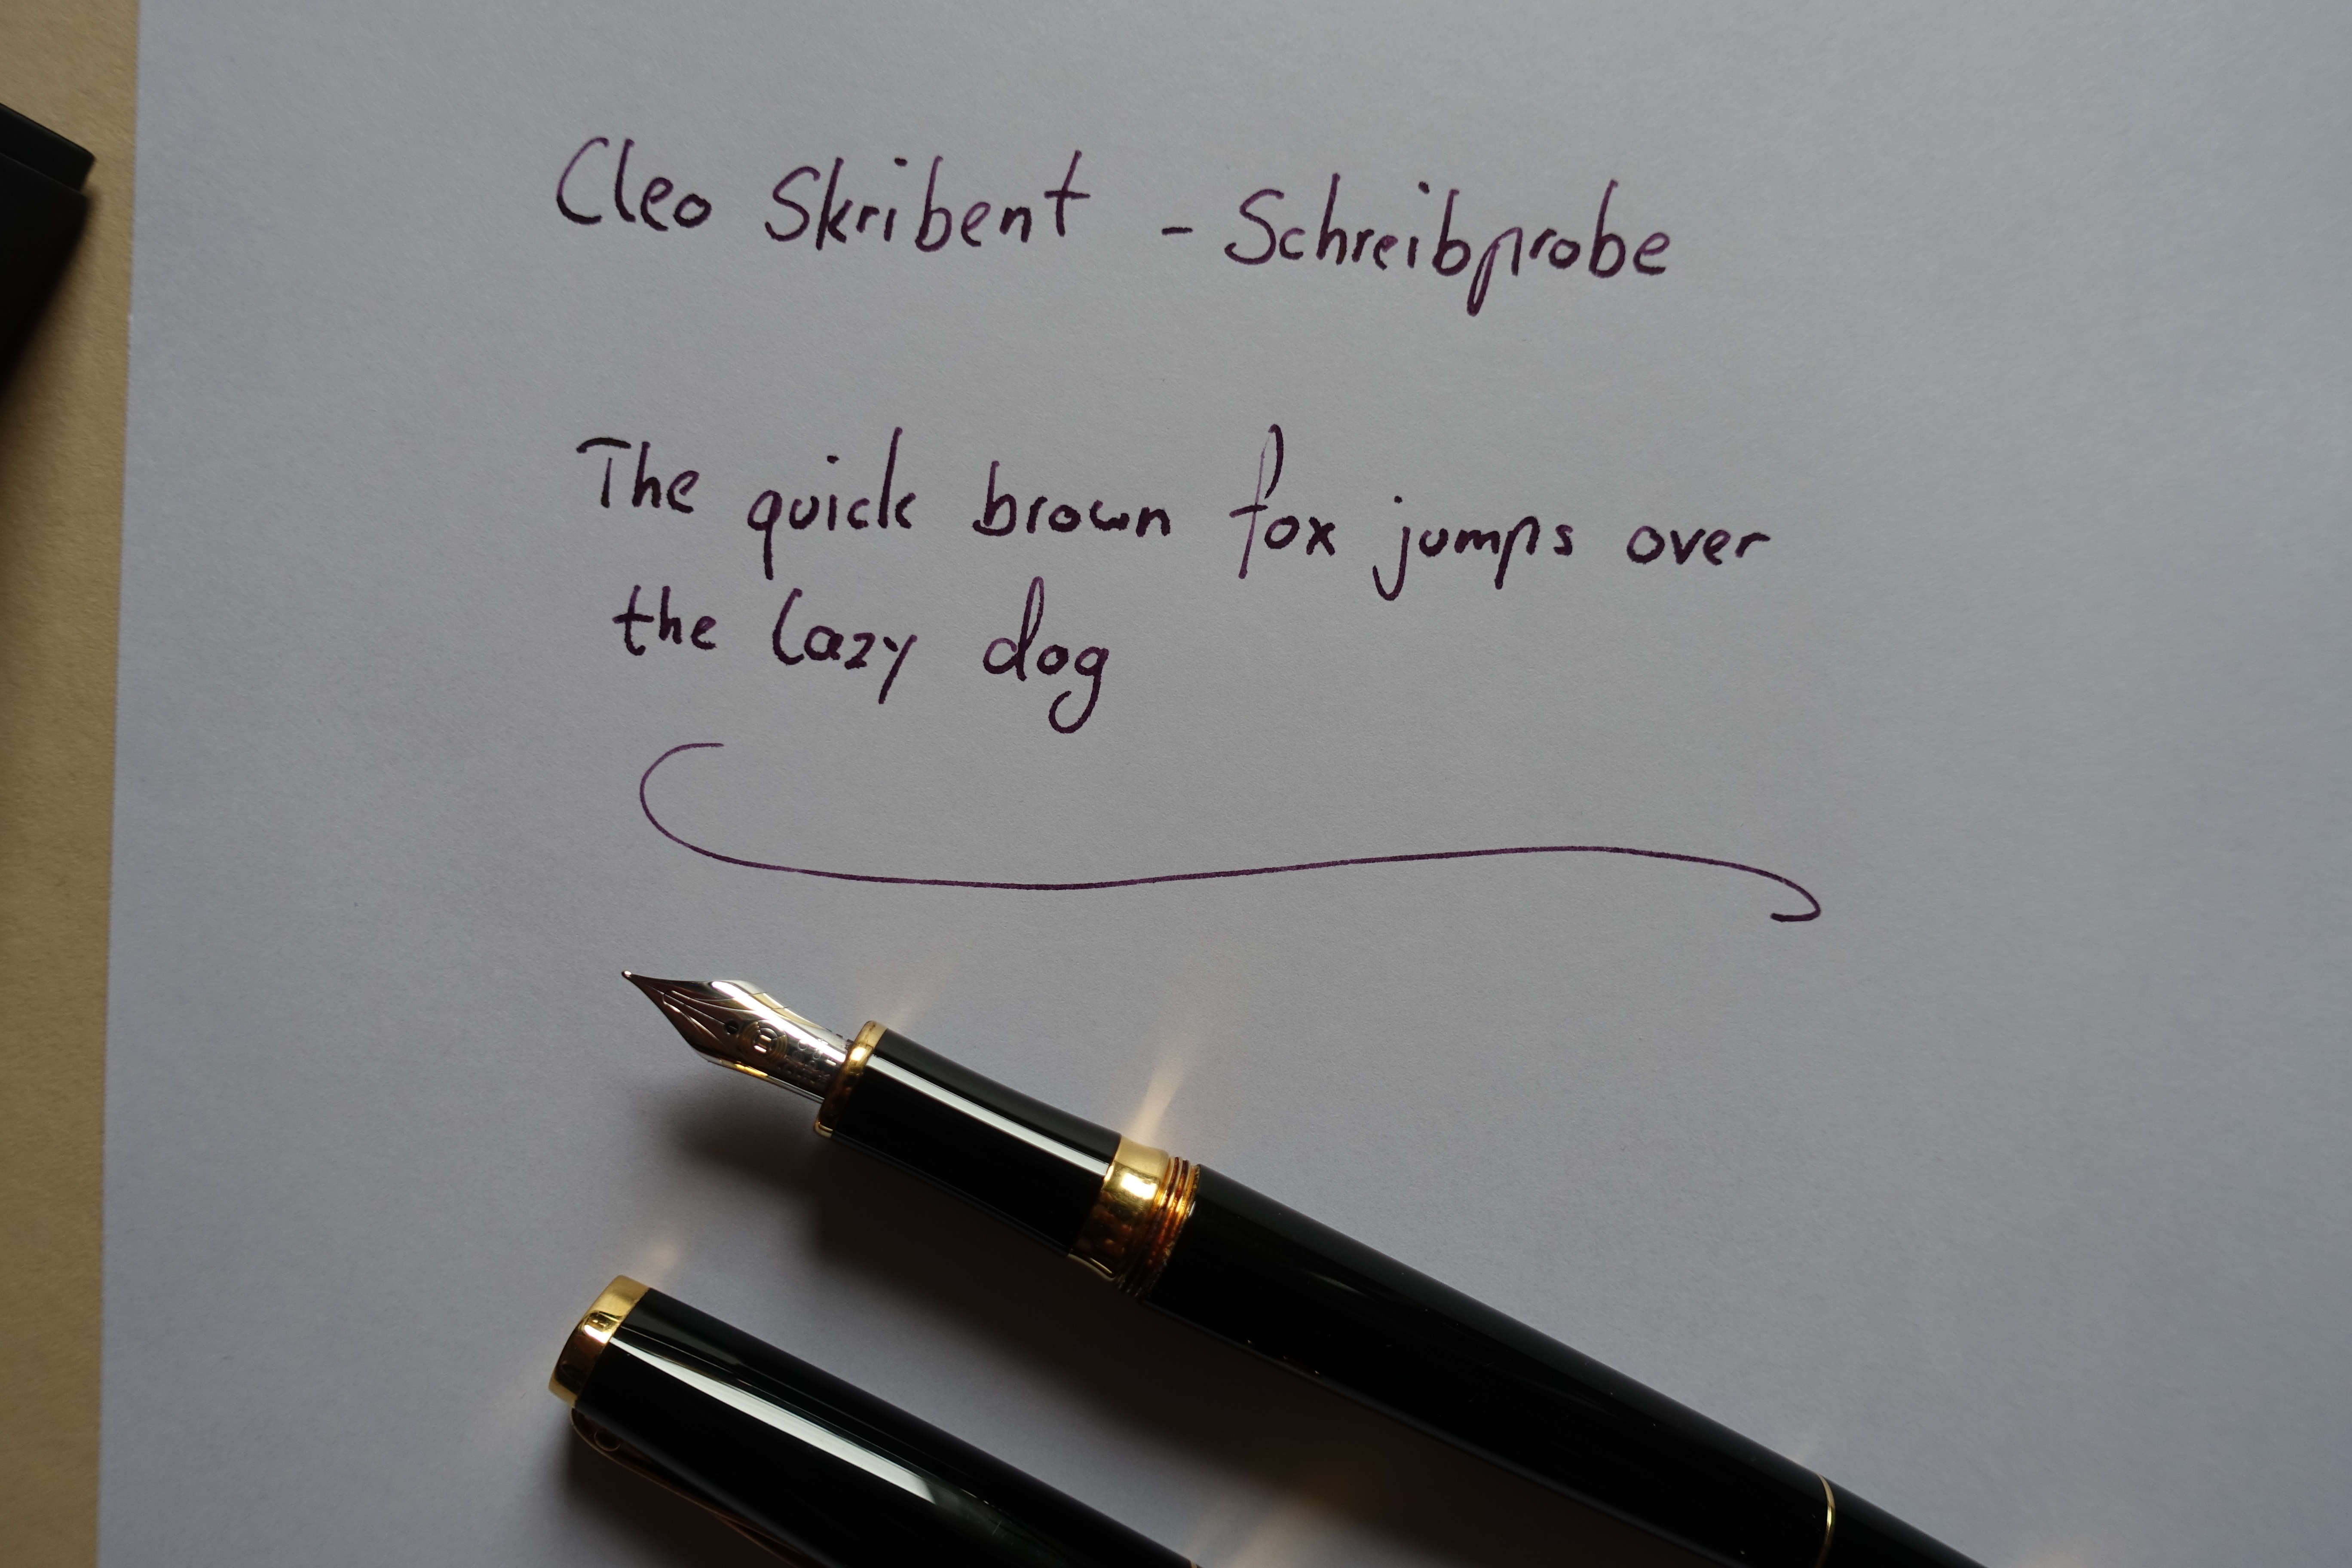 Cleo Skribent - Schreibprobe
The quick brown fox jumps over
the lazy dog